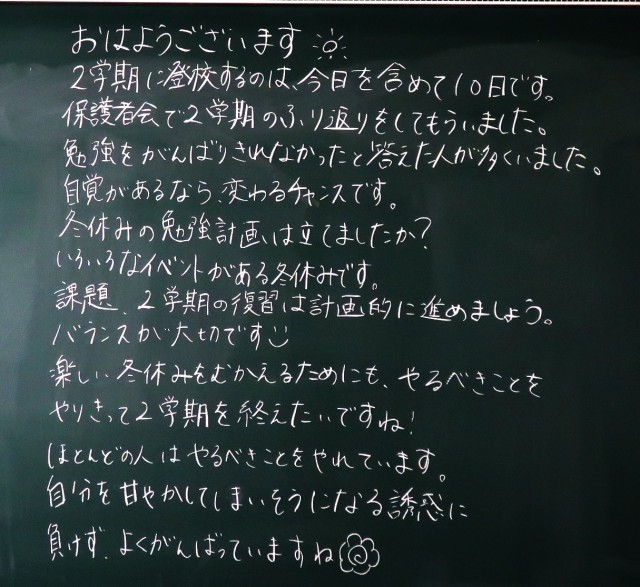 おはようございます
2学期に登校するのは、今日を含めて10日です。
保護者会で2学期のふり返りをしてもらいました。
勉強をがんばりきれなかったと答えた人が多くいました。
自覚があるなら、変わるチャンスです。
冬休みの勉強計画は立てましたか?
いろいろなイベントがある冬休みです。
課題、2学期の復習は計画的に進めましょう。
バランスが大切です
楽しい冬休みをむかえるためにも、やるべきことを
やりきって2学期を終えたいですね!
ほとんどの人はやるべきことをやれています。
自分を甘やかしてしまいそうになる誘惑に
負けず、よくがんばっていますね